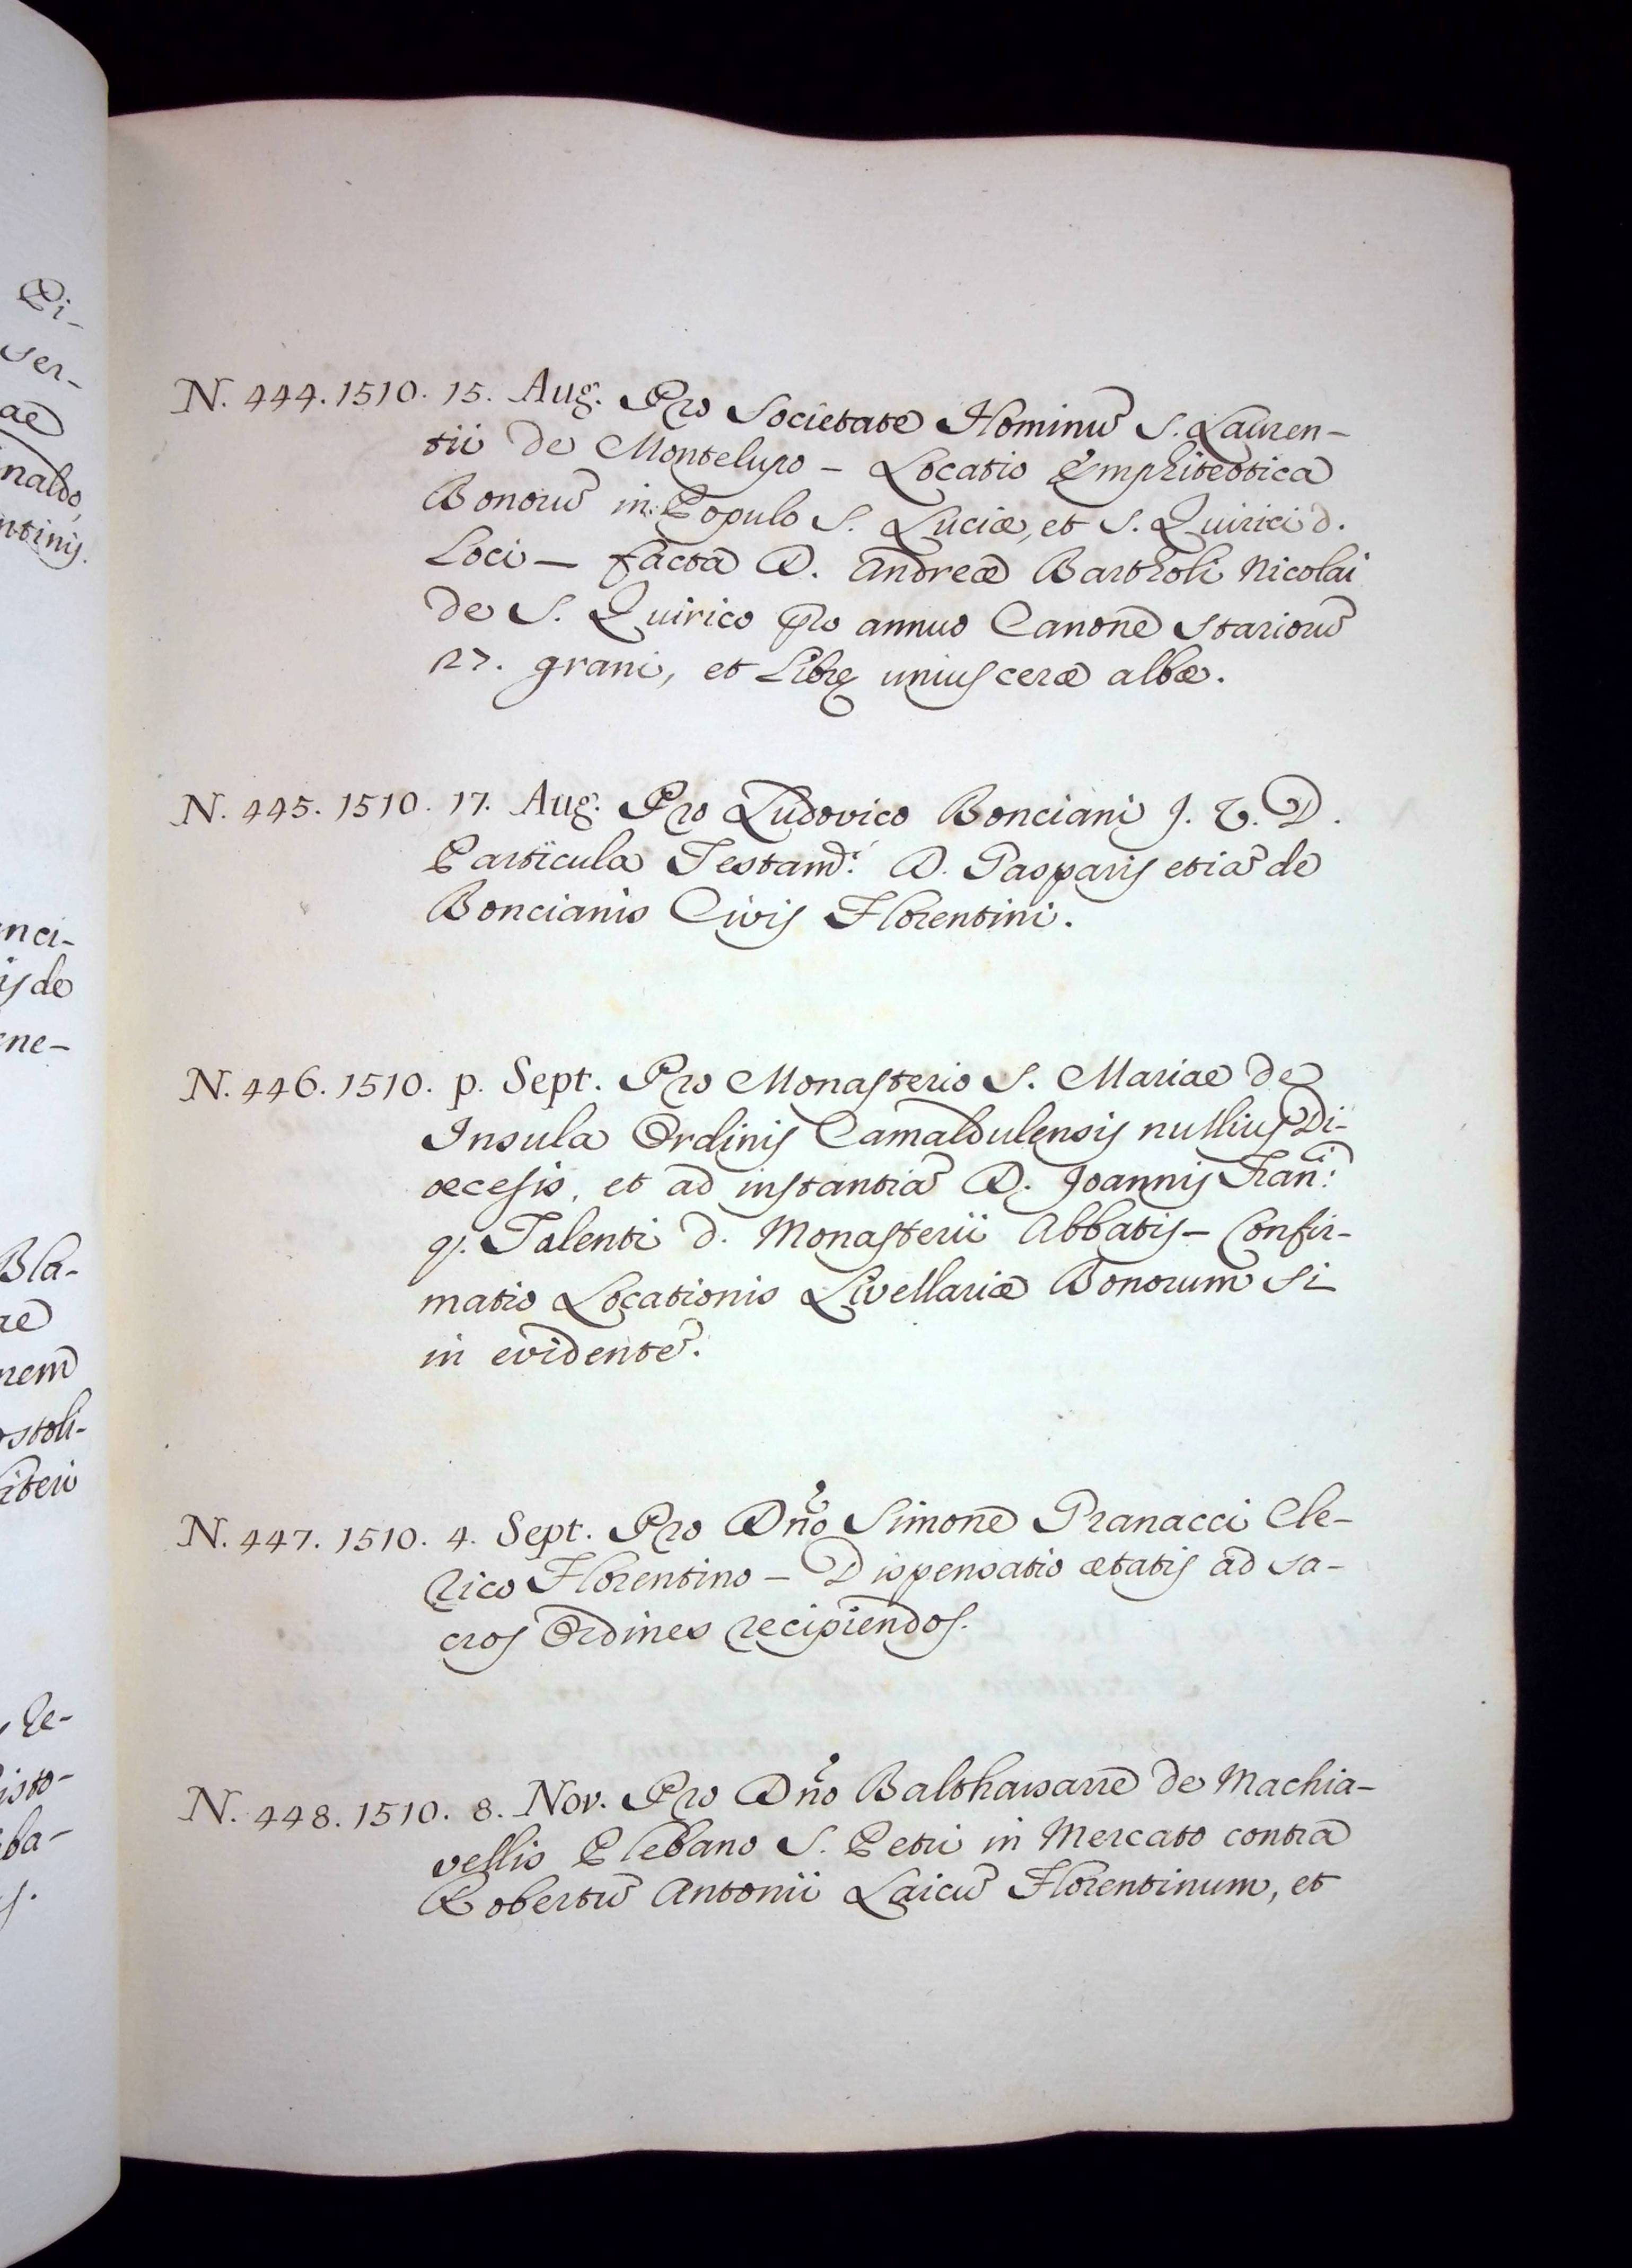 Pi-
ser-
ae
naldo,
ntinis.
nci-
is de
ne-
Bla-
ae
nem
stoli-
iteri
isto-
N. 444. 1510. 15. Aug. Pro Societate Hominũ S. Lauren-
tii de Montelupo – Locatio Emphiteotica
Bonorũ in Populo S. Luciæ, et S. Quirici d.
Loci – facta D. Andreæ Bartholi Nicolai
de S. Quirico pro annuo Canone Stariorũ
27. grani, et Librę unius ceræ albæ.
N. 445. 1510. 17. Aug. Pro Ludovico Bonciani J. V. D.
Particula Testamd: D. Gasparis etiã de
Boncianis Civis Florentini.
N. 446. 1510. p. Sept. Pro Monasterio S. Mariae de
Insula Ordinis Camaldulensis nullius Di-
œcesis, et ad instantiã D. Joannis Frañ:
q. Talenti d. Monasterii Abbatis – Confir-
matio Locationis Livellariæ Bonorum si
in evidentẽ.
N. 447. 1510. 4. Sept. Pro Dño Simone Granacci Cle-
rico Florentino – Dispensatio ætatis ad sa-
cros Ordines recipiendos.
N. 448. 1510. 8. Nov. Pro Dño Balthassarre de Machia-
vellis Plebano S. Petri in Mercato contra
Robertũ Antonii Laicũ Florentinum, et